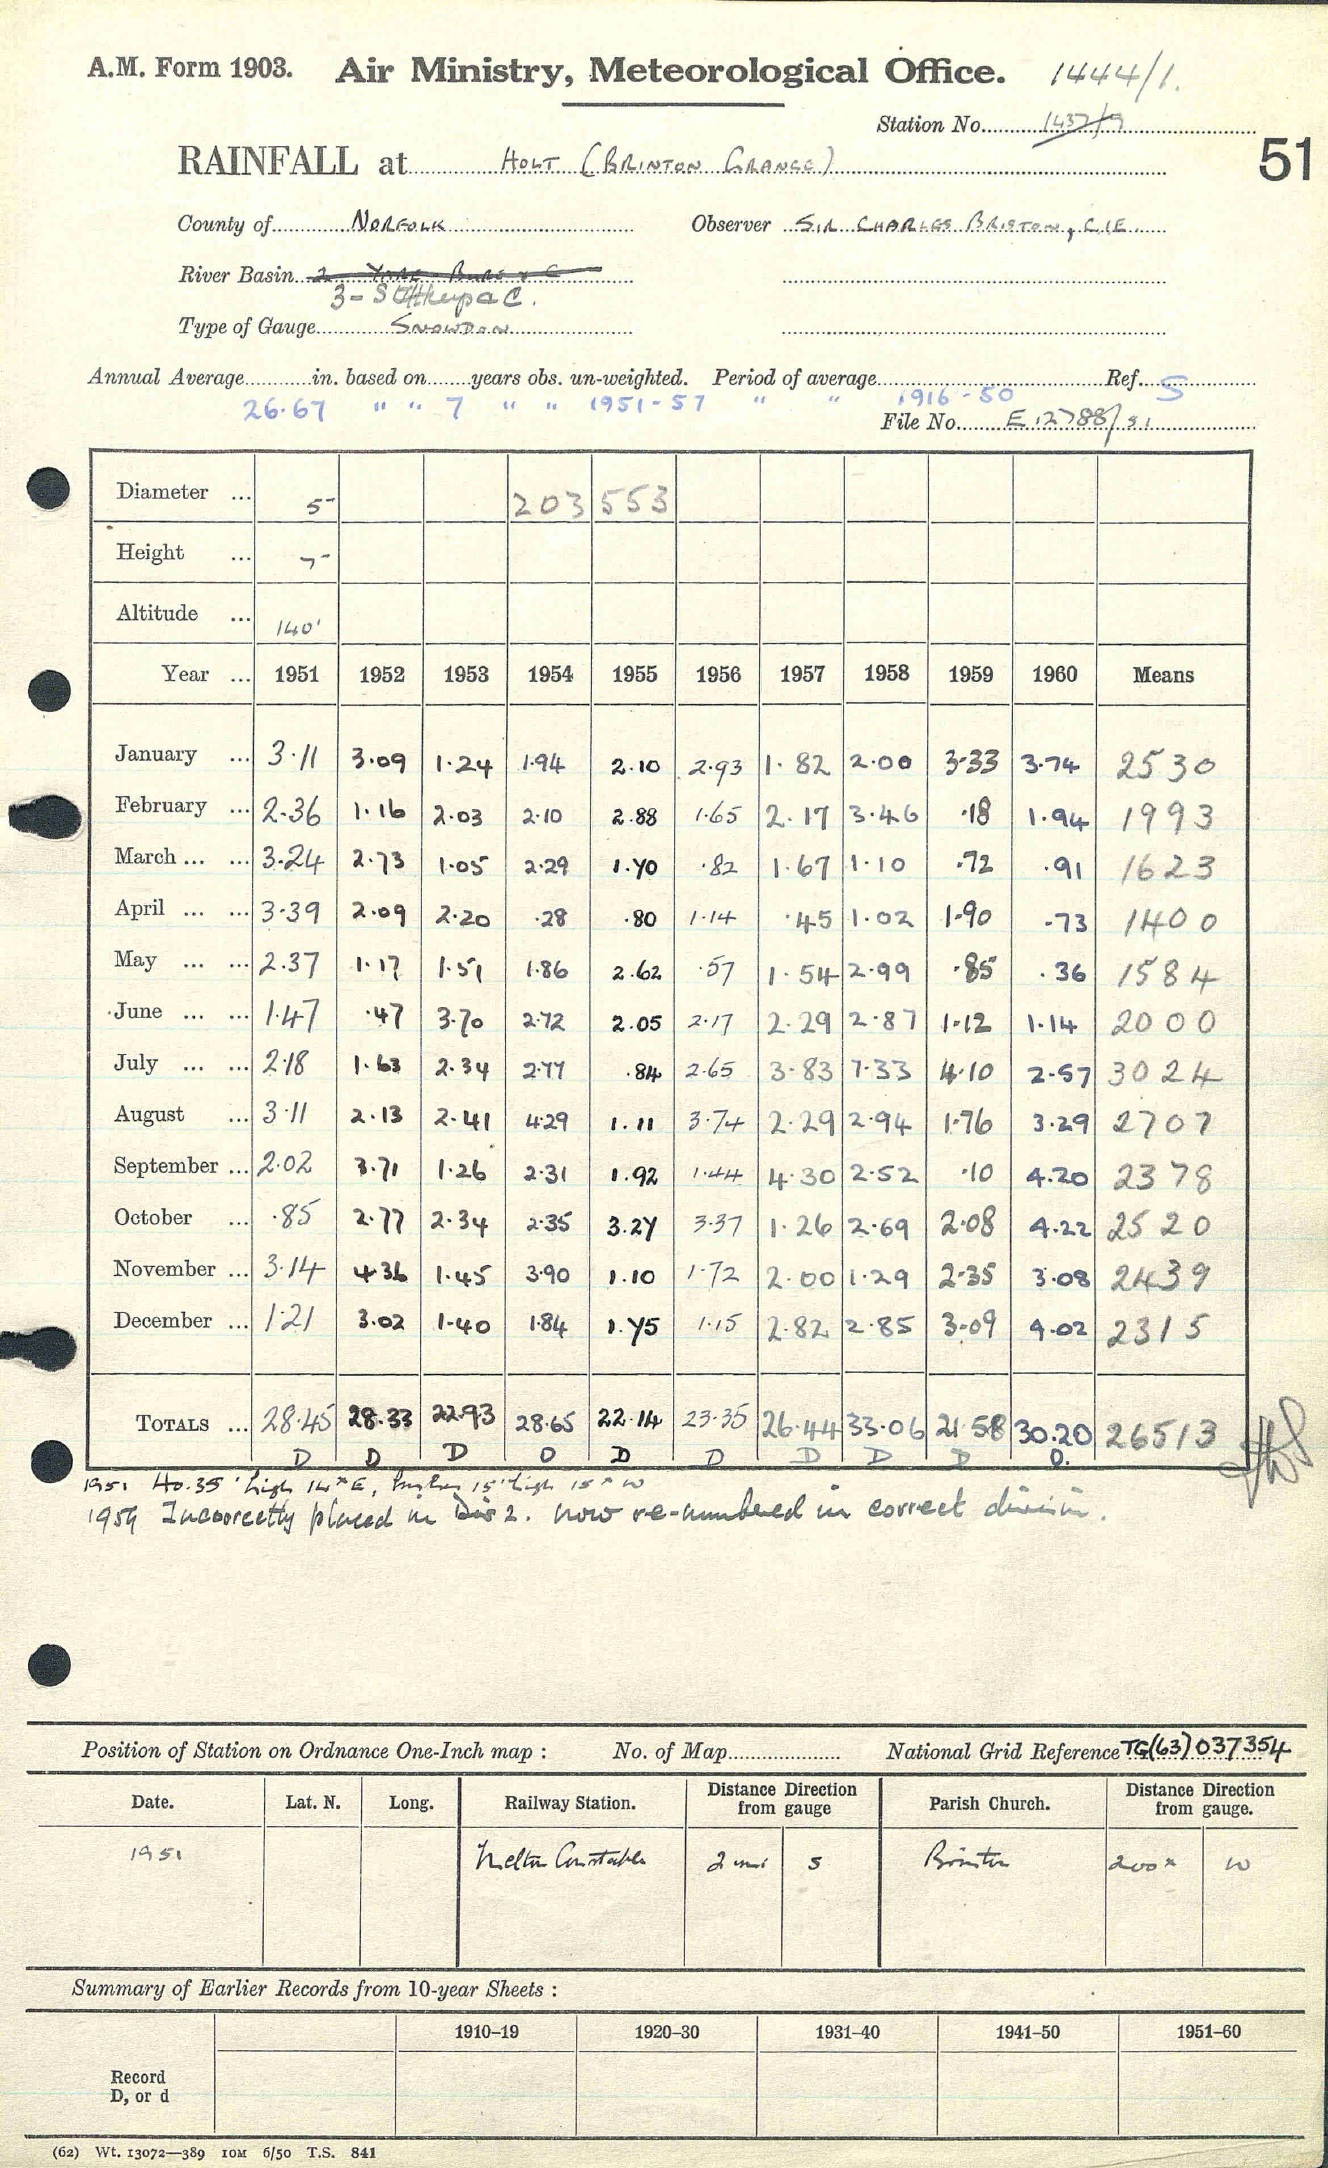 A.M. Form 1903. Air Ministry, Meteorological Office. 1444/1.
Station No. 1437/9
51
RAINFALL at HOLT (BRINTON GRANGE)
County of NORFOLK Observer SIR CHARLES BRISTOW, CIE.
River Basin 2 YARE BURE & C
3 - &C.
Type of Gauge SNOWDON
Annual Average in. based on years obs. un-weighted. Period of average Ref. S
26.67 " " 7 " " 1951-57 " " 1916-50
File No. E.12788/51
Diameter ... 5" 203 553
Height ... 
Altitude ... 140'
Year ... 1951 1952 1953 1954 1955 1956 1957 1958 1959 1960 Means
January ... 3.11 3.09 1.24 1.94 2.10 2.93 1.82 2.00 3.33 3.74 2530
February ... 2.36 1.16 2.03 2.10 2.88 1.65 2.17 3.46 .18 1.94 1993
March ... ... 3.24 2.73 1.05 2.29 1.70 .82 1.67 1.10 .72 .91 1623
April ... ... 3.39 2.09 2.20 .28 .80 1.14 .45 1.02 1.90 .73 1400
May ... ... 2.37 1.17 1.51 1.86 2.62 .57 1.54 2.99 .85 .36 1584
June ... ... 1.47 .47 3.70 2.72 2.05 2.17 2.29 2.87 1.12 1.14 2000
July ... ... 2.18 1.63 2.34 2.77 .84 2.65 3.83 7.33 4.10 2.57 3024
August ... 3.11 2.13 2.41 4.29 1.11 3.74 2.29 2.94 1.76 3.29 2707
September ... 2.02 3.71 1.26 2.31 1.92 1.44 4.30 2.52 .10 4.20 2378
October ... .85 2.77 2.34 2.35 3.27 3.37 1.26 2.69 2.08 4.22 2520
November ... 3.14 4.36 1.45 3.90 1.10 1.72 2.00 1.29 2.35 3.08 2439
December ... 1.21 3.02 1.40 1.84 1.75 1.15 2.82 2.85 3.09 4.02 2315
TOTALS ... 28.45 28.33 22.93 28.65 22.14 23.35 26.44 33.06 21.58 30.20 26513
D D D D D D D D D D.
1951 Ho. 35' high 14x E, 15' high 15x W
1959 Incorrectly placed in Div 2. now re-numbered in correct division.
Position of Station on Ordnance One-Inch map : No. of Map National Grid Reference TG(63)037354
Date. Lat. N. Long. Railway Station. Distance Direction from gauge Parish Church. Distance Direction from gauge.
1951 Melton Constable 2 mi S Brinton 200x W
Summary of Earlier Records from 10-year Sheets :
1910–19 1920–30 1931–40 1941–50 1951–60
Record
D, or d
(62) Wt. 13072—389 10M 6/50 T.S. 841